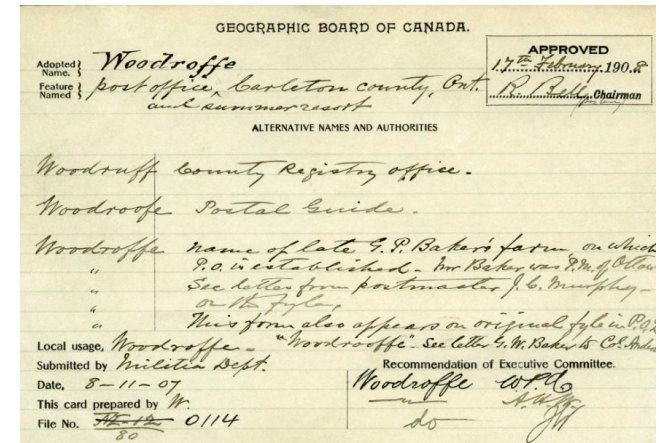 GEOGRAPHIC BOARD OF CANADA.
Adopted Name. } Woodroffe
Feature Named } post office, Carleton county, Ont.
and summer resort
APPROVED
17th February 1908
R. Bell Chairman
ALTERNATIVE NAMES AND AUTHORITIES
Woodruff County Registry office.
Woodroofe Postal Guide.
Woodroffe name of late G. P. Baker's farm on which
" P.O. is established - Mr Baker was P.M. of Ottaw
" See letter from postmaster J. C. Murphy -
" on the fyle,
" This form also appears on original fyle in P.O.
Local usage, Woodroffe - "Woodrooffe". See letter G. W. Baker to Col. Anders
Submitted by Militia Dept.
Date, 8-11-07
This card prepared by W.
File No. 0114
80
Recommendation of Executive Committee.
Woodroffe
do